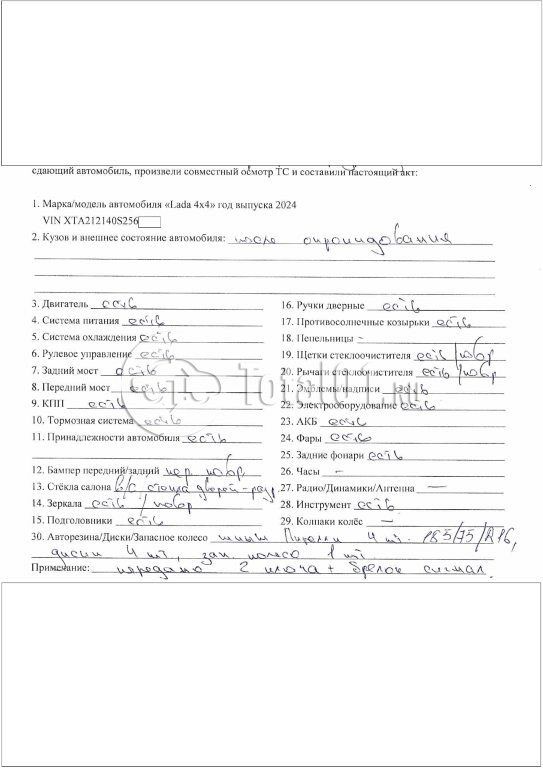 сдающий автомобиль, произвели совместный осмотр ТС и составили настоящий акт:
1. Марка/модель автомобиля «Lada 4x4» год выпуска 2024
VIN XTA212140S256
2. Кузов и внешнее состояние автомобиля: после опрокидования
3. Двигатель есть
4. Система питания есть
5. Система охлаждения есть
6. Рулевое управление есть
7. Задний мост есть
8. Передний мост есть
9. КПП есть
10. Тормозная система есть
11. Принадлежности автомобиля есть
12. Бампер передний/задний пер. повр
13. Стёкла салона в/с стекла дверей-разр
14. Зеркала есть / повр
15. Подголовники есть
16. Ручки дверные есть
17. Противосолнечные козырьки есть
18. Пепельницы –
19. Щетки стеклоочистителя есть / повр
20. Рычаги стеклоочистителя есть / повр
21. Эмблемы/надписи есть
22. Электрооборудование есть
23. АКБ есть
24. Фары есть
25. Задние фонари есть
26. Часы –
27. Радио/Динамики/Антенна –
28. Инструмент есть
29. Колпаки колёс –
30. Авторезина/Диски/Запасное колесо шины Пирелли 4 шт. 185/75/R16,
диски 4 шт, зап. колесо 1 шт
Примечание: передано 2 ключа + брелок сигнал.